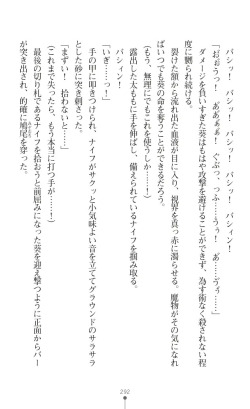 バシッ！　バシッ！　バシッ！　バシィン！
「おぉうっ！　ああぁぁ！　ぐぶっ、っふ……う！　あ……ぅぅ……」
ダメージを負いすぎた葵はもはや攻撃を避けることができず、為す術なく殺されない程
度に嬲られ続ける。
裂けた額から流れ出た血液が目に入り、視界を真っ赤に濡らせる。魔物がその気になれ
ばいつでも葵の命を奪うことができるだろう。
（もう、無理にでもこれを使うしか……！）
露出した太ももに手を伸ばし、備えられているナイフを掴み取る。
バシィン！
「いぎ……っ！」
手の甲に叩きつけられ、ナイフがサクッと小気味よい音を立ててグラウンドのサラサラ
とした砂に突き刺さる。
（まずい！　拾わないと……！）
（これを失ったら、もう本当に打つ手が……！）
最後の切り札であるナイフを拾おうと前屈みになった葵を迎え撃つように正面からバー
が突き出され、的確に鳩尾を穿つ。
202